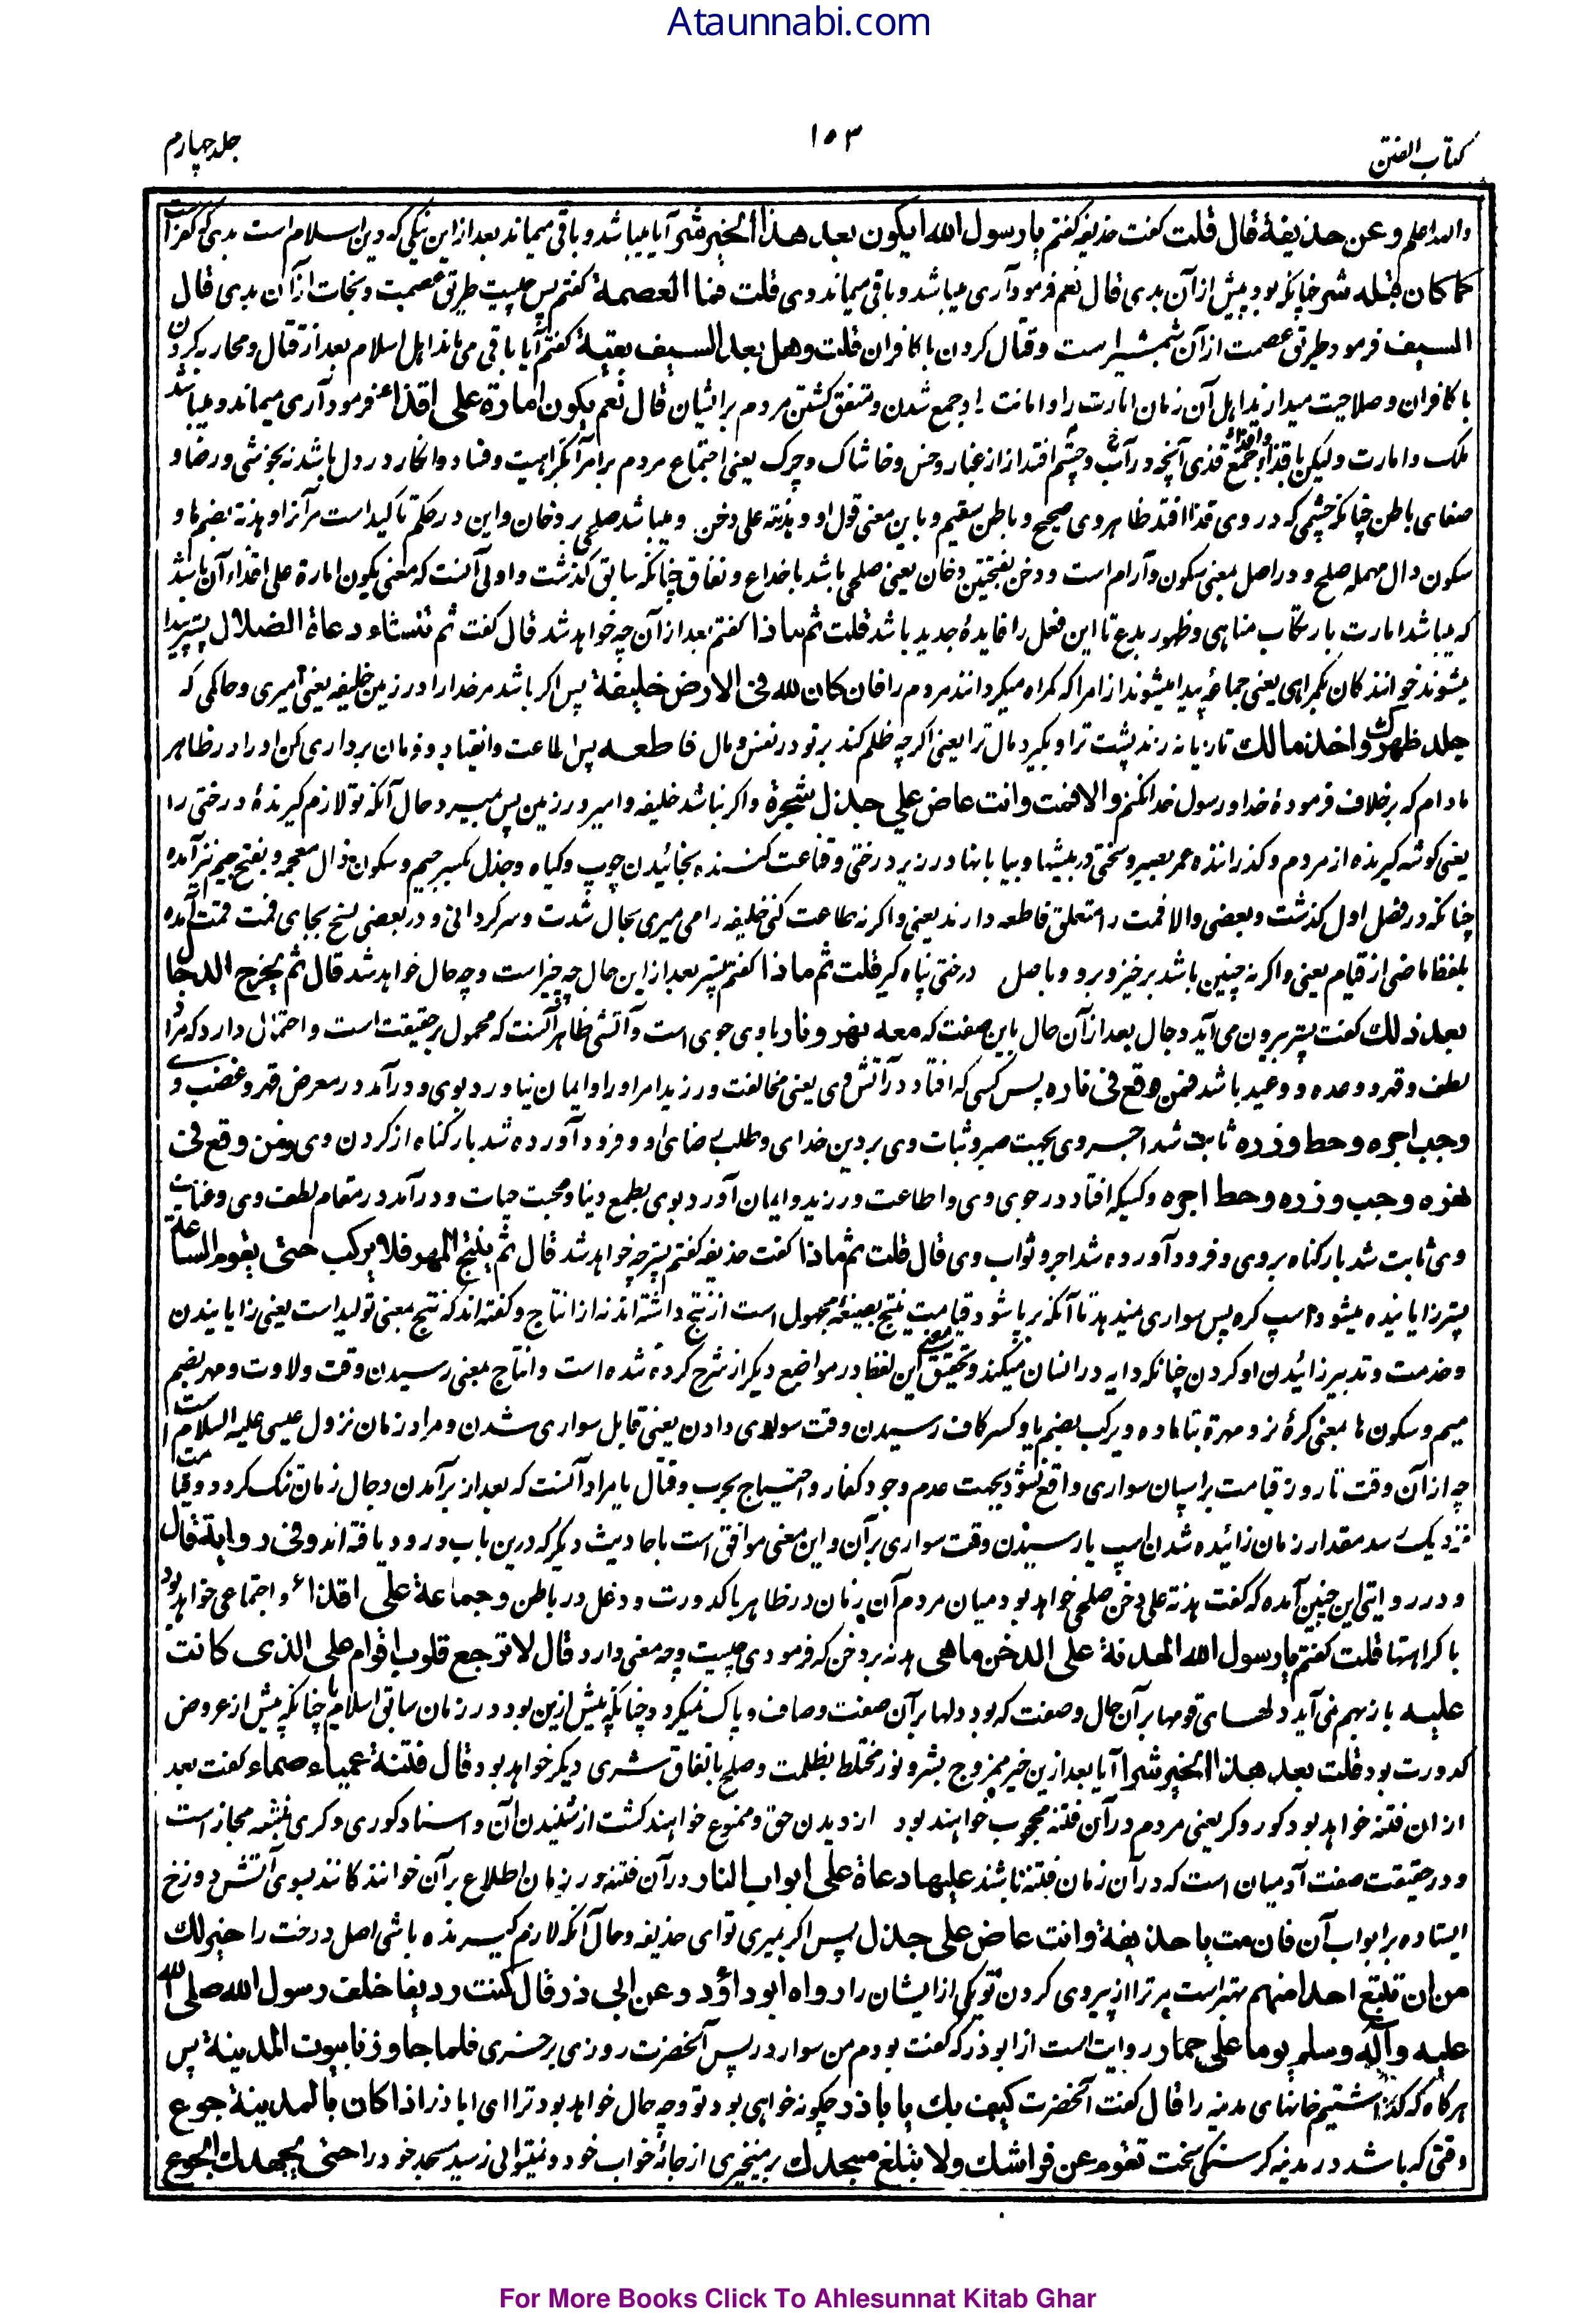 Ataunnabi.com
کتاب الفتن
۱۵۳
جلد چهارم
والله اعلم وعن حذيفة قال قلت گفت حذیفه گفتم یا رسول الله ایکون بعد هذا الخیر شر آیا میباشد و باقی میماند بعد از این نیکی که دین اسلام است بدی که کفر است
کما کان قبله شر چنانکه بود پیش از آن بدی قال نعم فرمود آری میباشد و باقی میماند وی قلت فما العصمة گفتم پس چیست طریق عصمت و نجات از آن بدی قال
السیف فرمود طریق عصمت از آن شمشیر است و قتال کردن با کافران قلت وهل بعد السیف بقیة گفتم آیا باقی می مانند اهل اسلام بعد از قتال و محاربه کردن
با کافران و صلاحیت میدارند اهل آن زمان امارت را و امانت را و جمع شدن و متفق گشتن مردم بر ایشان قال نعم یکون امارة علی اقذاء فرمود آری میماند و میباشد
ملک و امارت و لیکن با قذا و اقذاء جمع قذی آنچه در آب و چشم افتد از غبار و خس و خاشاک و چرک یعنی اجتماع مردم بر امرا بکراهیت و فساد و انکار در دل باشد نه بخوشی و رضا و
صفای باطن چنانکه چشمی که در وی قذا افتد ظاهر وی صحیح و باطن سقیم و باین معنی قول او و هدنة علی دخن و میباشد صلحی بر دخان و این در حکم تاکید است مر آنرا و هدنه بضم ها و
سکون دال مهمله صلح و در اصل بمعنی سکون و آرام است و دخن بفتحتین دخان یعنی صلحی باشد با خداع و نفاق چنانکه سابق گذشت و اولی آنست که معنی یکون امارة علی اقذاء آن باشد
که میباشد امارت بارتکاب مناهی و ظهور بدع تا این فعل را فایدهٔ جدید باشد قلت ثم ماذا گفتم بعد از آن چه خواهد شد قال گفت ثم تنشاء دعاة الضلال پستر پیدا
میشوند خوانندگان بگمراهی یعنی جماعهٔ پیدا میشوند از امرا که گمراه میگردانند مردم را فان کان لله فی الارض خلیفة پس اگر باشد مر خدا را در زمین خلیفه یعنی امیری و حاکمی که
جلد ظهرک واخذ مالک تازیانه زند پشت ترا و بگیرد مال ترا یعنی اگرچه ظلم کند بر تو در نفس و مال فاطعه پس اطاعت و انقیاد و فرمان برداری کن او را در ظاهر
مادام که بر خلاف فرمودهٔ خدا و رسول خدا نکند والا فمت وانت عاض علی جذل شجرة و اگر نباشد خلیفه و امیر در زمین پس بمیر در حال آنکه تو لازم گیرندهٔ درختی را
یعنی گوشه گیرنده از مردم و گذراننده عمر بصبر و سختی در بیشها و بیابانها در زیر درختی و قناعت کننده بخائیدن چوب و گیاه و جذل بکسر جیم و سکون ذال معجمه و بفتح جیم نیز آمده
چنانکه در فصل اول گذشت و بعضی والا فمت را متعلق فاطعه دارند یعنی و اگر نه طاعت کنی خلیفه را می میری بحال شدت و سرگردانی و در بعضی نسخ بجای فمت قمت آمده
بلفظ ماضی از قیام یعنی و اگر نه چنین باشد برخیز و برو و باصل درختی پناه گیر قلت ثم ماذا گفتم پستر بعد از این حال چه چیز است و چه حال خواهد شد قال ثم یخرج الدجال
بعد ذلك گفت پستر بیرون می آید دجال بعد از آن حال باین صفت که معه نهر ونار با وی جوی است و آتشی ظاهر آنست که محمول بر حقیقت است و احتمال دارد که مراد
لطف و قهر و وعده و وعید باشد فمن وقع فی ناره پس کسی که افتاد در آتش وی یعنی مخالفت ورزید امر او را و ایمان نیاورد بوی و درآمد در معرض قهر و غضب وی
وجب اجره وحط وزره ثابت شد اجر وی بجهت صبر و ثبات وی بر دین خدای و طلب رضای او و فرود آورده شد بار گناه از گردن وی ومن وقع فی
نهره وجب وزره وحط اجره و کسیکه افتاد در جوی وی و اطاعت ورزید و ایمان آورد بوی بطمع دنیا و محبت حیات و درآمد در مقام لطف وی و عنایت
وی ثابت شد بار گناه بر وی و فرود آورده شد اجر و ثواب وی قال قلت ثم ماذا گفت حذیفه گفتم پستر چه خواهد شد قال ثم ینتج المهر فلا یرکب حتی یقوم الساعة
پستر زایانیده میشود اسپ کره پس سواری نمیدهد تا آنکه برپا شود قیامت ینتج بصیغهٔ مجهول است از نتج داشته اند نه از انتاج و گفته اند که نتج بمعنی تولید است یعنی زایانیدن
و خدمت و تدبیر زائیدن او کردن چنانکه دایه در انسان میکند و تحقیق معنی این لفظ در مواضع دیگر از شرح کرده شده است و انتاج بمعنی رسیدن وقت ولادت و مهر بضم
میم و سکون ها بمعنی کرهٔ نر و مهرة بتا ماده و یرکب بضم یا و کسر کاف رسیدن وقت سواری دادن یعنی قابل سواری شدن و مراد زمان نزول عیسی علیه السلام است
چه از آن وقت تا روز قیامت بر اسپان سواری واقع نشود بجهت عدم وجود کفار و احتیاج بحرب و قتال یا مراد آنست که بعد از برآمدن دجال زمان تنگ گردد و قیامت
نزدیک رسد مقدار زمان زائیده شدن اسپ یا رسیدن وقت سواری بر آن و این معنی موافق است باحادیث دیگر که درین باب ورود یافته اند وفی روایة قال
و در روایتی این چنین آمده که گفت هدنة علی دخن صلحی خواهد بود میان مردم آن زمان در ظاهر با کدورت و دغل در باطن وجماعة علی اقذاء و اجتماعی خواهد بود
با کراهتها قلت گفتم یا رسول الله الهدنة علی الدخن ما هی هدنه بر دخن که فرمودی چیست و چه معنی دارد قال لا ترجع قلوب اقوام علی الذی کانت
علیه باز بهم نمی آید دلهای قومها بر آن حال و صفت که بود دلها بر آن صفت و صاف و پاک نمیگردد چنانکه پیش ازین بود در زمان سابق اسلام یا چنانکه پیش از عروض
کدورت بود قلت بعد هذا الخیر شر آیا بعد ازین خیر ممزوج بشر و نور مختلط بظلمت و صلح با نفاق شری دیگر خواهد بود قال فتنة عمیاء صماء گفت بعد
از ان فتنه خواهد بود کور و کر یعنی مردم در آن فتنه محجوب خواهند بود از دیدن حق و ممنوع خواهند گشت از شنیدن آن و اسناد کوری و کری بفتنه مجاز است
و در حقیقت صفت آدمیان است که در آن زمان فتنه باشند علیها دعاة علی ابواب النار در آن فتنه و زمان اطلاع بر آن خوانندگانند بسوی آتش دوزخ
ایستاده بر ابواب آن فان مت یا حذیفة وانت عاض علی جذل پس اگر بمیری تو ای حذیفه و حال آنکه لازم گیرنده باشی اصل درخت را خیر لك
من ان تتبع احدا منهم بهتر است مر ترا از پیروی کردن تو یکی از ایشان را رواه ابو داؤد وعن ابی ذر قال کنت ردیفا خلف رسول الله صلی الله
علیه وآله وسلم یوما علی حمار روایت است از ابو ذر که گفت بودم من سوار در پس آنحضرت روزی بر خری فلما جاوزنا بیوت المدینة پس
هرگاه که گذشتیم خانهای مدینه را قال گفت آنحضرت کیف بك یا با ذر چگونه خواهی بود تو و چه حال خواهد بود ترا ای ابا ذر اذا کان بالمدینة جوع
وقتی که باشد در مدینه گرسنگی سخت تقوم عن فراشك ولا تبلغ مسجدك برمیخیزی از جائهٔ خواب خود و نمیتوانی رسید مسجد خود را حتی یجهدك الجوع
For More Books Click To Ahlesunnat Kitab Ghar